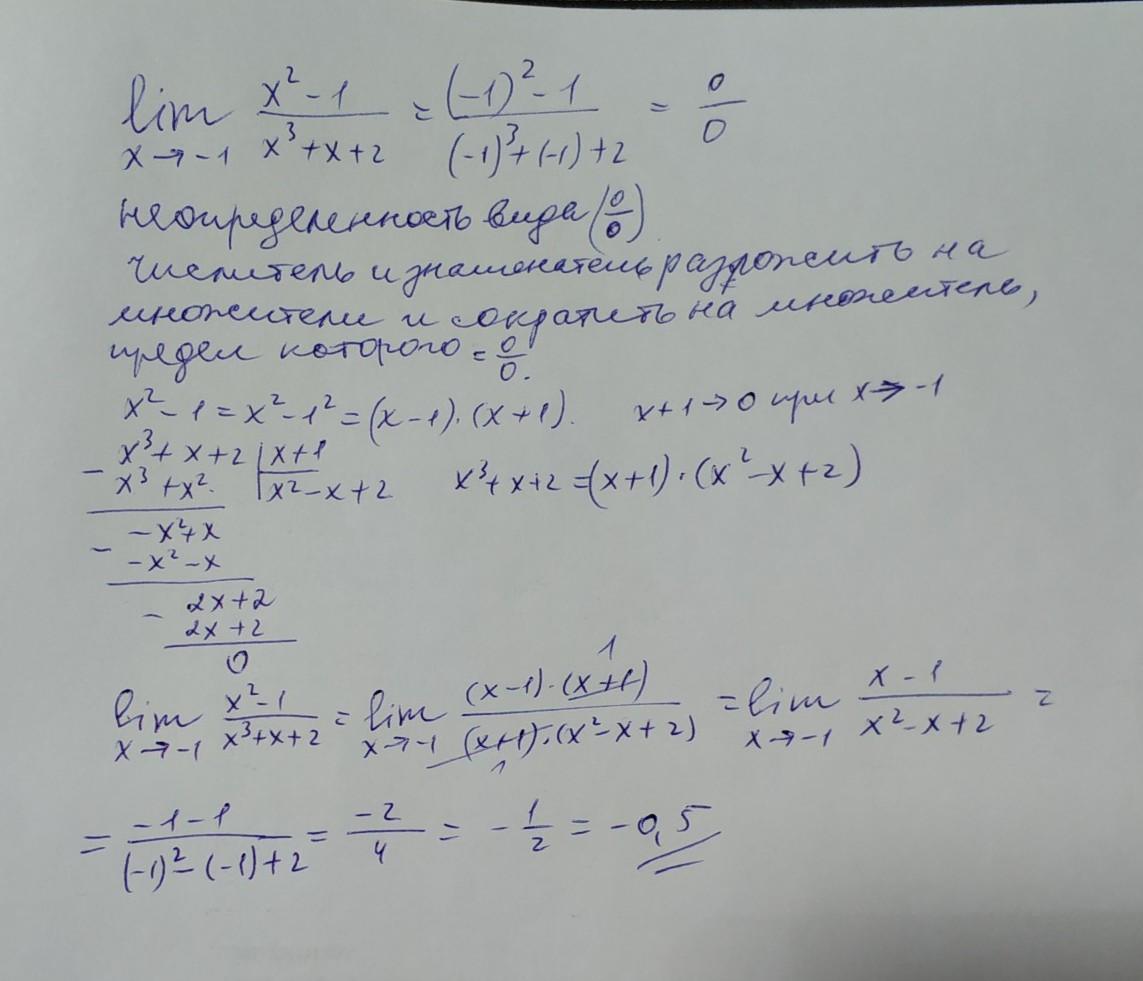 lim x→-1 (x² - 1)/(x³ + x + 2) = ((-1)² - 1)/((-1)³ + (-1) + 2) = 0/0
неопределенность вида (0/0)
числитель и знаменатель разложить на
множители и сократить на множитель,
предел которого = 0/0.
x² - 1 = x² - 1² = (x - 1)·(x + 1). x + 1 → 0 при x → -1
- x³ + x + 2 | x + 1
x³ + x². | x² - x + 2 x³ + x + 2 = (x + 1)·(x² - x + 2)
- -x² + x
-x² - x
- 2x + 2
2x + 2
0
1
lim x→-1 (x² - 1)/(x³ + x + 2) = lim x→-1 ((x - 1)·(x + 1))/((x + 1)·(x² - x + 2)) = lim x→-1 (x - 1)/(x² - x + 2) =
1
= (-1 - 1)/((-1)² - (-1) + 2) = -2/4 = -1/2 = -0,5